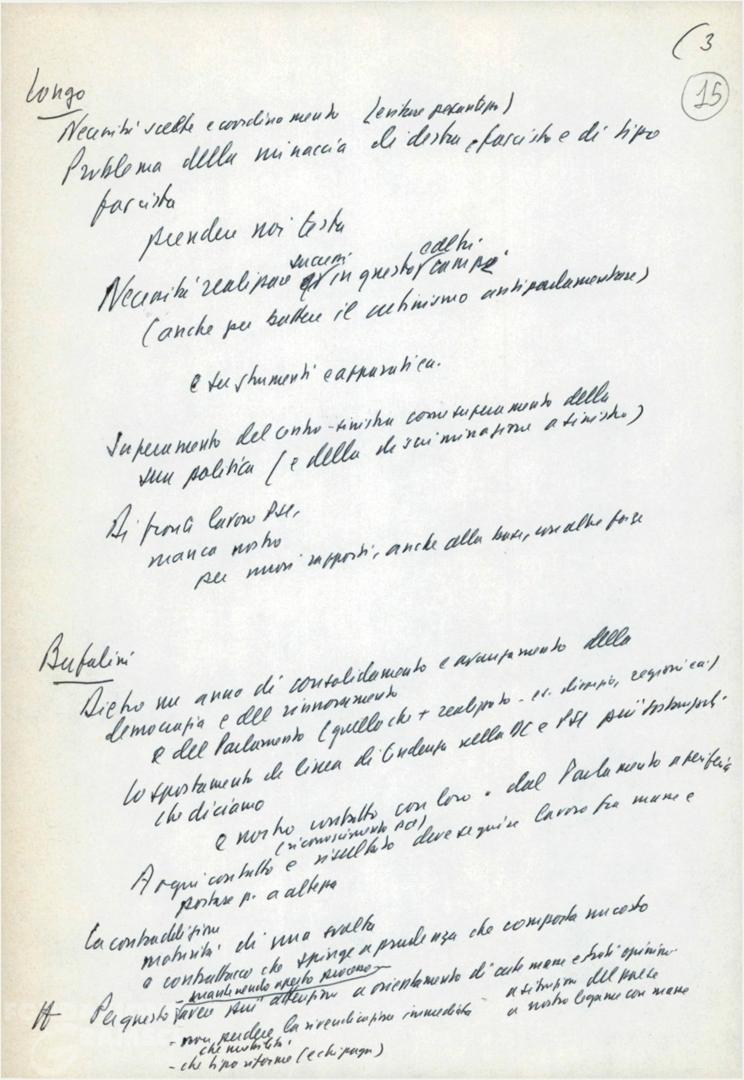 ( 3
15
Longo
Necessità scelte e coordinamento (evitare
Problema della minaccia di destra, fascista e di tipo
fascista
prendere noi testa
Necessità realizzare successi in questo e altri campi
(anche per battere il cretinismo antiparlamentare)
e su strumenti e apparati ca.
Superamento del centro-sinistra come superamento della
sua politica (e della discriminazione a sinistra)
Di fronte lavoro PSI,
manca nostro
per nuovi rapporti, anche alla base, con altre forze
Bufalini
Dietro un anno di consolidamento e avanzamento della
democrazia e del rinnovamento
e del Parlamento (quello che + realizzato - es. divorzio, regioni ca.)
Lo spostamento di linea di tendenza nella DC e PSI più
che diciamo
e nostro contatto con loro. dal Parlamento a periferia
(riconoscimento PCI)
A ogni contatto e risultato deve seguire lavoro fra masse e
portare a altezza
La contraddizione
maturità di una svolta
e contrattacco che spinge a prudenza che comporta un costo
- mantenendo questo processo
Per questo lavoro più attenzione a orientamento di certe masse e strati opinione
- non perdere la rivendicazione immediata
a situazione del paese
che mobilità
a nostro legame con masse
- che tipo riforme (e chi paga)